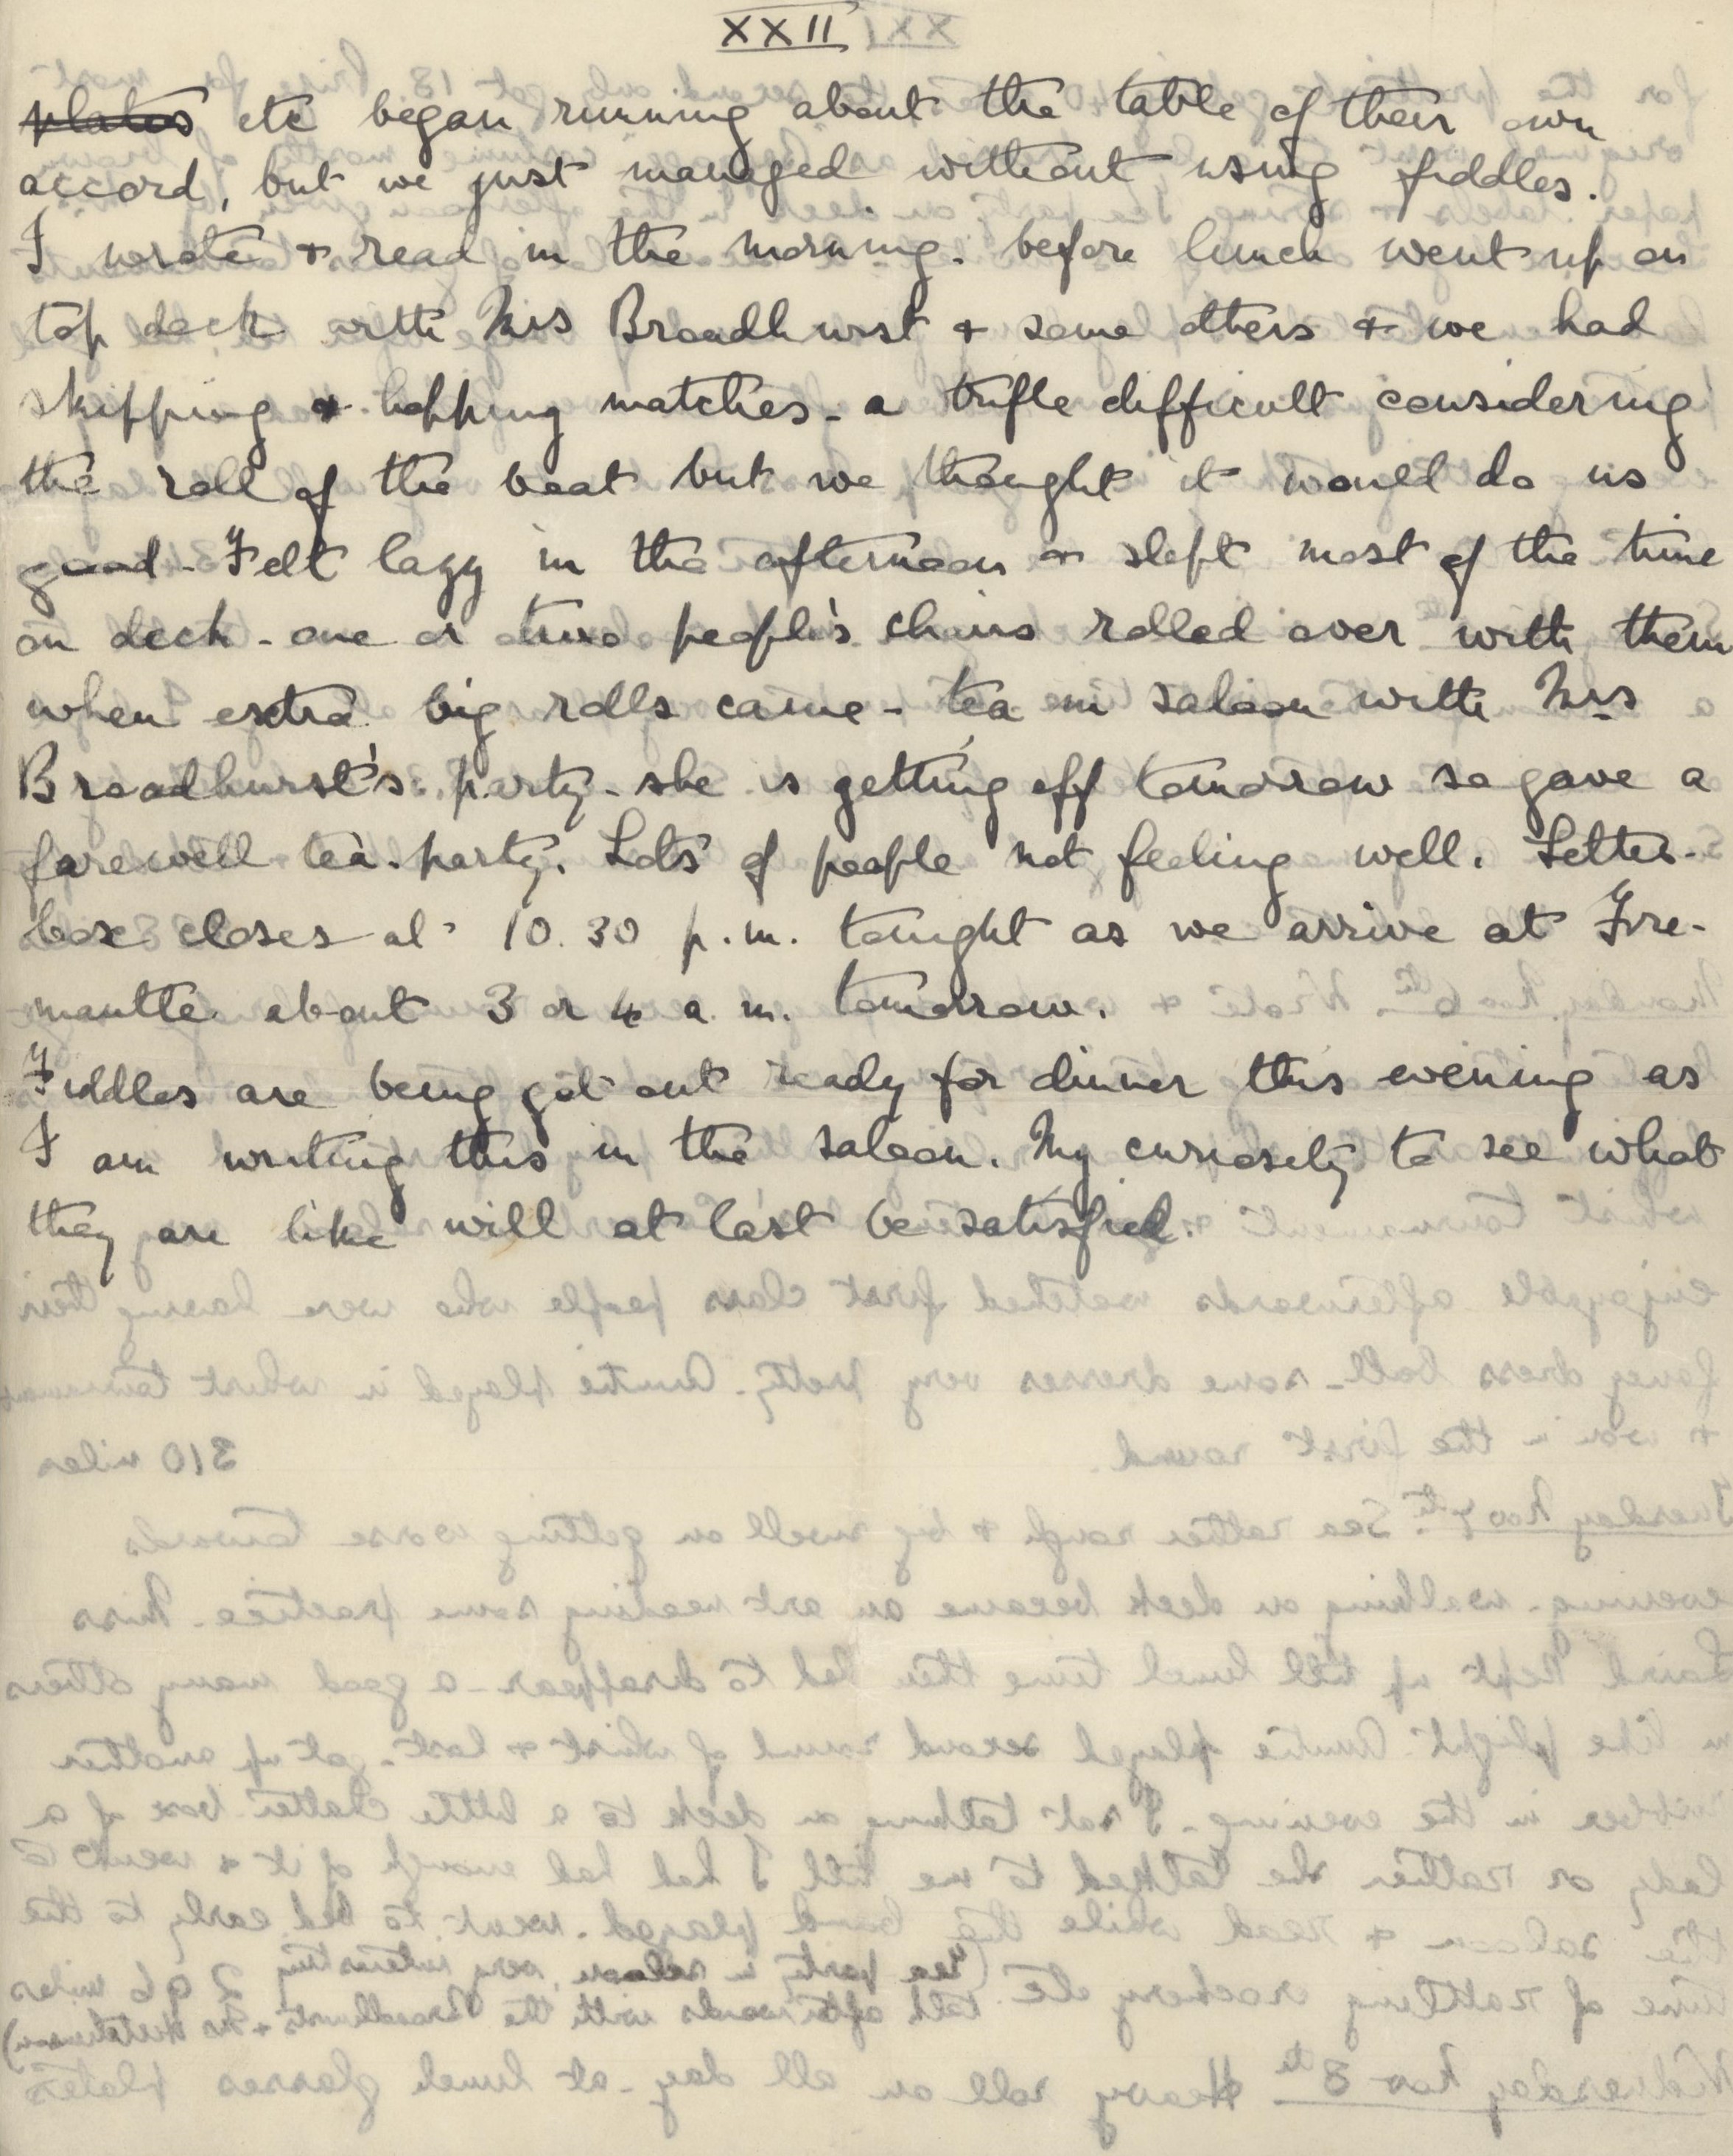 XXII
plates etc began running about the table of their own
accord, but we just managed without using fiddles.
I wrote + read in the morning. before lunch went up on
top deck with Mrs Broadhurst + some others + we had
skipping + hopping matches - a trifle difficult considering
the roll of the boat but we thought it would do us
good - Felt lazy in the afternoon + slept most of the time
on deck - one or two people's chairs rolled over with them
when extra big rolls came - tea in saloon with Mrs
Broadhurst's party - she is getting off tomorrow so gave a
farewell tea-party. Lots of people not feeling well. Letter-
box closes at 10.30 p.m. tonight as we arrive at Fre-
mantle about 3 or 4 a.m. tomorrow.
Fiddles are being got out ready for dinner this evening as
I am writing this in the saloon. My curiosity to see what
they are like will at last be satisfied.